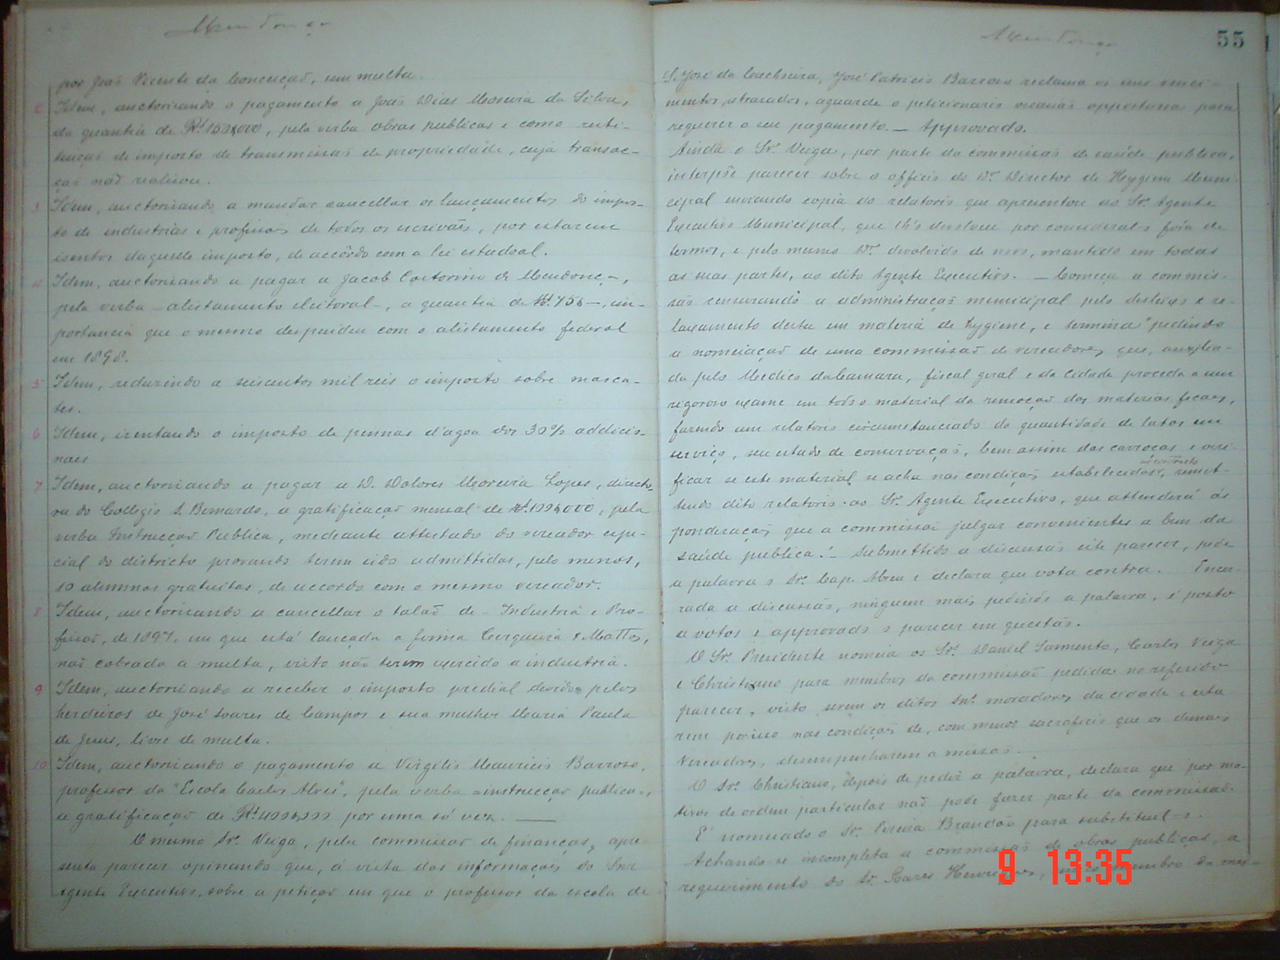 Mendonça
por João Vicente da Conceição, sem multa.
2 Idem, auctorisando o pagamento a João Dias Moreira da Silva,
da quantia de Rs 152$000, pela verba obras publicas e como resti-
tuição de imposto de transmissão de propriedade, cuja transac-
ção não realisou.
3 Idem, auctorisando a mandar cancellar os lançamentos do impos-
to de industrias e profissões de todos os escrivães, por estarem
isentos daquelle imposto, de accôrdo com a lei estadoal.
4 Idem, auctorisando a pagar a Jacob de Mendonça,
pela verba - alistamento eleitoral -, a quantia de , im-
portancia que o mesmo despendeu com o alistamento federal
em 1898.
5 Idem, reduzindo a seiscentos mil reis o imposto sobre masca-
tes.
6 Idem, isentando o imposto de pennas d'agoa dos 30% addicio-
naes
7 Idem, auctorisando a pagar a D. Dolores Moreira Lopes, directo-
ra do Collegio S. Bernardo, a gratificação mensal de , pela
verba Instrucção Publica, mediante attestado do vereador espe-
cial do districto provando terem sido admittidas, pelo menos,
10 alumnas gratuitas, de accordo com o mesmo vereador.
8 Idem, auctorisando a cancellar o talão de - Industria e Pro-
fissão, de 1897, em que está lançada a firma Cerqueira & Mattos,
não cobrada a multa, visto não terem exercido a industria.
9 Idem, auctorisando a receber o imposto predial devido pelos
herdeiros de José Soares de Campos e sua mulher Maria Paula
de Jesus, livre de multa.
10 Idem, auctorisando o pagamento a Virgilio Mauricio Barroso,
professor da "Escola Carlos Alves", pela verba - instrucção publica -,
a gratificação de por uma só vez.
O mesmo Sr. Veiga, pela commissão de finanças, apre-
senta parecer opinando que, á vista das informações do Snr
Agente Executivo, sobre a petição em que o professor da escola de
Mendonça
55
S. José da Cachoeira, José Patricio Barroso reclama os seus venci-
mentos atrazados, aguarde o peticionario occasião opportuna para
requerer o seu pagamento. - Approvado.
Ainda o Sr. Veiga, por parte da commissão de saúde publica,
interpõe parecer sobre o officio do Dr. Director de Hygiene Muni-
cipal enviando copia do relatorio que apresentou ao Sr. Agente
Executivo Municipal, que lh'o devolveu por consideral-o fóra de
termos, e pelo mesmo Dr. devolvido de novo, mantido em todas
as suas partes, ao dito Agente Executivo. - Começa a commis-
são censurando a administração municipal pelo desleixo e re-
laxamento desta em materia de hygiene, e termina "pedindo
a nomeação de uma commissão de vereadores, que, auxilia-
da pelo Medico da Camara, fiscal geral e da Cidade proceda a um
rigoroso exame em todo o material da remoção das materias fecaes,
fazendo um relatorio circumstanciado da quantidade de latas em
serviço, seu estado de conservação, bem assim das carroças e veri-
ficar se este material se acha nas condições estabelecidas, remet-
tendo dito relatorio ao Sr. Agente Executivo, que attenderá ás
ponderações que a commissão julgar convenientes a bem da
saúde publica." - Submettido a discussão este parecer, pede
a palavra o Sr. Cap. Abreu e declara que vota contra. Encer-
rada a discussão, ninguem mais pedindo a palavra, é posto
a votos e approvado o parecer em questão.
O Sr. Presidente nomeia os Srs. Daniel Sarmento, Carlos Veiga
e Christiano para membros da commissão pedida no referido
parecer, visto serem os ditos Snrs. moradores da cidade e esta-
rem por isso nas condições de, com menos sacrificio que os demais
Vereadores, desempenharem a missão.
O Sr. Christiano, depois de pedir a palavra, declara que por mo-
tivos de ordem particular não pode fazer parte da commissão.
É nomeado o Sr. Pereira Brandão para substituil-o.
Achando-se incompleta a commissão de obras publicas, a
requerimento do Sr. membro da mes-
9 13:35